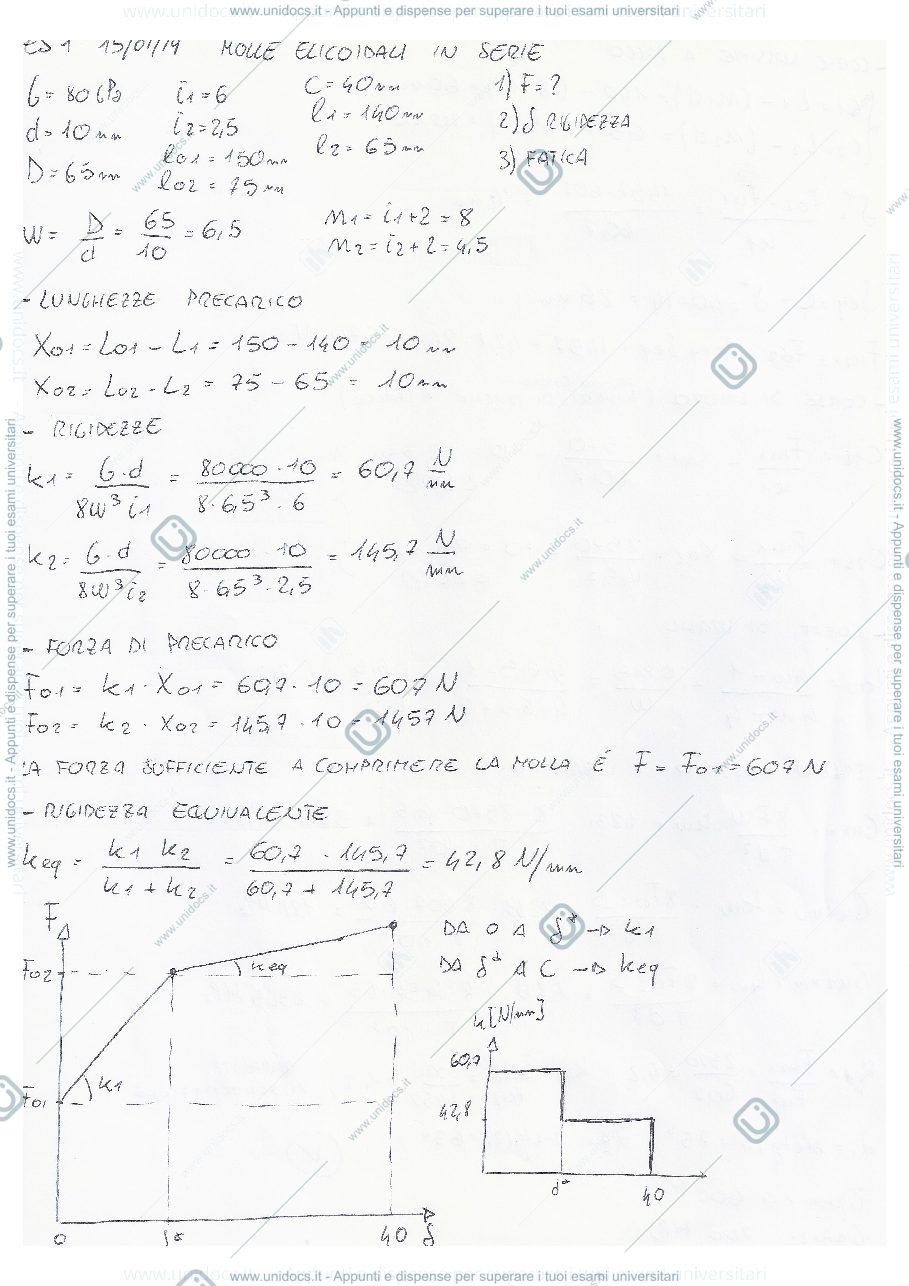 www.unidocs.it - Appunti e dispense per superare i tuoi esami universitari
ES 1 15/01/19 MOLLE ELICOIDALI IN SERIE
G = 80 GPa i1 = 6 C = 40 mm 1) F = ?
d = 10 mm i2 = 2,5 l1 = 140 mm 2) δ RIGIDEZZA
D = 65 mm l01 = 150 mm l2 = 65 mm 3) FATICA
l02 = 75 mm
W = D/d = 65/10 = 6,5 M1 = i1+2 = 8
M2 = i2+2 = 4,5
- LUNGHEZZE PRECARICO
X01 = L01 - L1 = 150 - 140 = 10 mm
X02 = L02 - L2 = 75 - 65 = 10 mm
- RIGIDEZZE
k1 = G·d / 8W³ i1 = 80000 · 10 / 8·6,5³·6 = 60,7 N/mm
k2 = G·d / 8W³ i2 = 80000 · 10 / 8·6,5³·2,5 = 145,7 N/mm
- FORZA DI PRECARICO
F01 = k1 · X01 = 60,7 · 10 = 607 N
F02 = k2 · X02 = 145,7 · 10 = 1457 N
LA FORZA SUFFICIENTE A COMPRIMERE LA MOLLA É F = F01 = 607 N
- RIGIDEZZA EQUIVALENTE
keq = k1 k2 / k1 + k2 = 60,7 · 145,7 / 60,7 + 145,7 = 42,8 N/mm
F
F02
keq
k1
F01
0 δ* 40 δ
DA 0 A δ* → k1
DA δ* A C → keq
k [N/mm]
60,7
42,8
δ* 40
www.unidocs.it - Appunti e dispense per superare i tuoi esami universitari
www.unidocs.it - Appunti e dispense per superare i tuoi esami universitari
www.unidocs.it - Appunti e dispense per superare i tuoi esami universitari